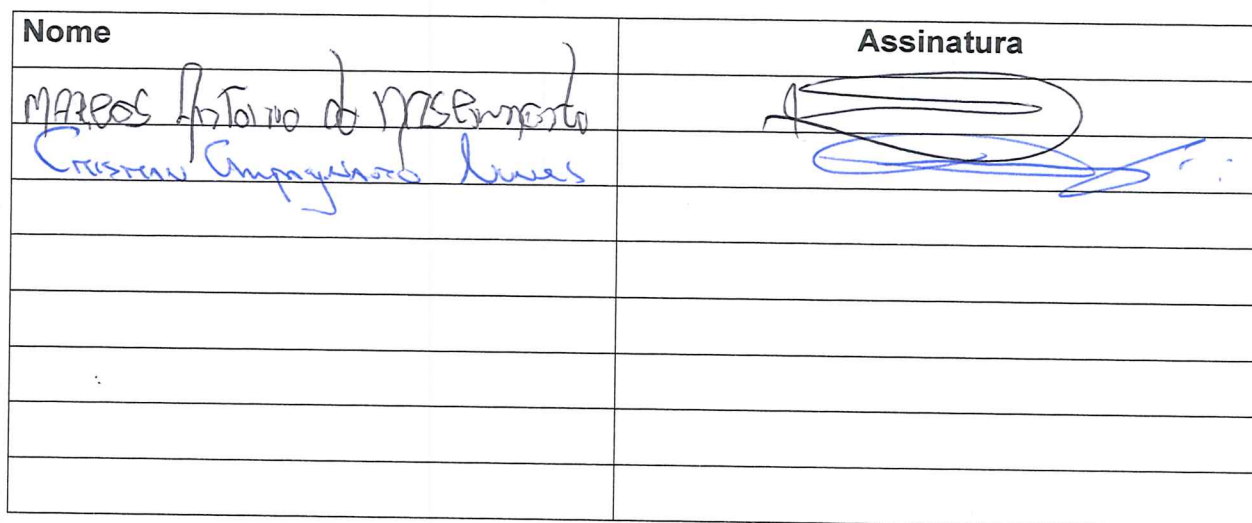 Nome Assinatura
MARCOS Antonio do NASCimento
Cristian Nunes